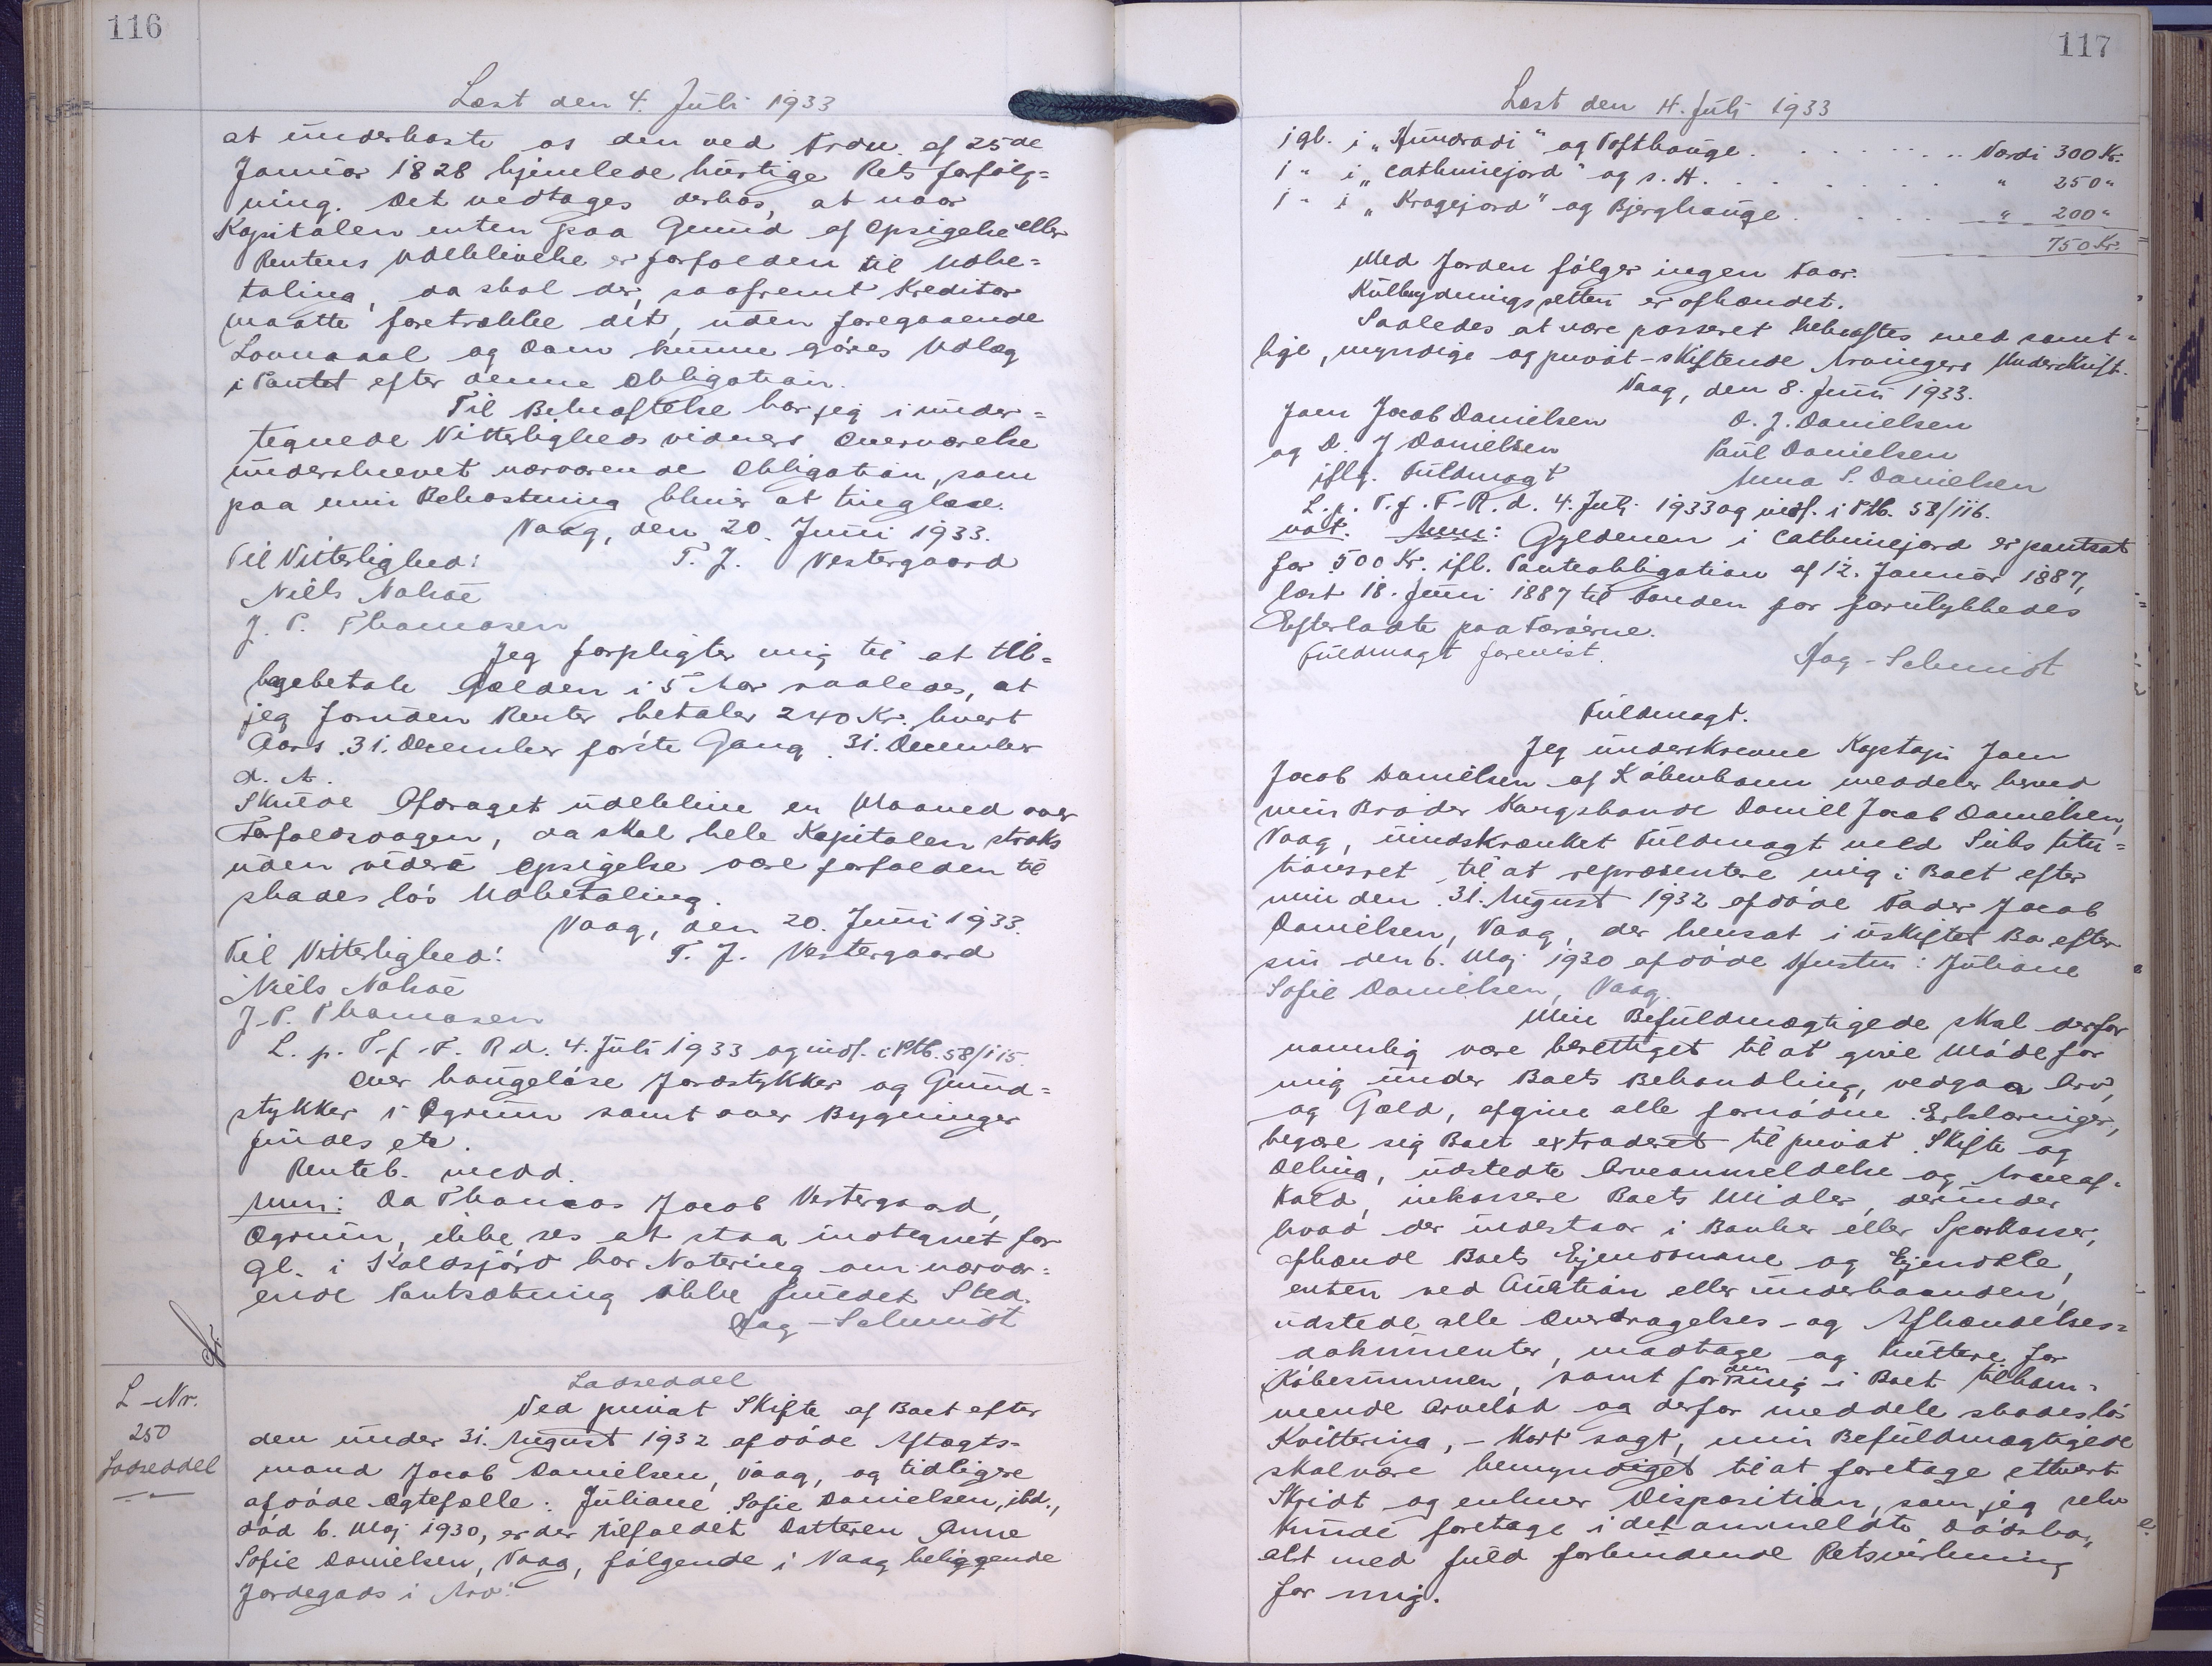 116
Læst den 4. Juli 1933
at underkaste os den ved Frdn. af 25de
Januar 1828 hjemlede hurtige Retsforfølg=
ning. Det vedtages derhos, at naar
Kapitalen enten paa Grund af Opsigelse eller
Rentens Udeblivelse er forfalden til Udbe=
taling, da skal der, saafremt Kreditor
maatte foretrække det, uden foregaaende
Lovmaal og Dom kunne gøres Udlæg
i Pantet efter denne Obligation.
Til Bekræftelse har jeg i under=
tegnede Vitterlighedsvidners Overværelse
underskrevet nærværende Obligation, som
paa min Bekostning bliver at tinglæse.
Vaag, den 20. Juni 1933.
Til Vitterlighed: T. J. Vestergaard
Niels Nolsøe
J. P. Thomasen
Jeg forpligter mig til at tilba=
gebetale Gælden i 5 Aar saaledes, at
jeg foruden Renter betaler 240 Kr. hvert
Aars 31. December første Gang 31. December
d. A.
Skulde Afdraget udeblive en Maaned over
Forfaldsdagen, da skal hele Kapitalen straks
uden videre Opsigelse være forfalden til
skadesløs Udbetaling.
Vaag, den 20. Juni 1933.
Til Vitterlighed: T. J. Vestergaard
Niels Nolsøe
J. P. Thomasen
L. p. T. f. F. R d. 4. Juli 1933 og indf. i Ptb. 58/115
Over haugeløse Jordstykker og Grund=
stykker i Øgrum samt over Bygninger
findes etc.
Renteb. medd.
Anm: Da Thomas Jacob Vestergaard,
Øgrum, ikke ses at staa indtegnet for
gl. i Koldsjørd har Notering om nærvær=
ende Pantsætning ikke fundet Sted.
Aag-Schmidt
L-Nr.
250
Lodseddel
Lodseddel
Ved privat Skifte af Boet efter
den under 31. August 1932 afdøde Aftægts-
mand Jacob Danielsen, Vaag, og tidligere
afdøde Ægtefælle: Juliane Sofie Danielsen, ibd.,
død 6. Maj 1930, er der tilfaldet Datteren Anne
Sofie Danielsen, Vaag, følgende i Vaag beliggende
Jordegods i Arv:
117
Læst den 4. Juli 1933
1 gl. i "Hundradi" og Tofthauge . . . . . . Værdi 300 Kr.
1 " i "Cathriejord" og s. H. . . . . . . " 250 "
1 " i "Kragejord" og Bjerghauge . . . . " 200 "
750 Kr.
Med Jorden følger ingen Faar.
Kulbrydningsretten er afhændet.
Saaledes at være passeret bekræftes med samt=
lige, myndige og privat-skiftende Arvingers Underskrift.
Vaag, den 8. Juni 1933.
Joen Jacob Danielsen D. J. Danielsen
og D. J Danielsen Paul Danielsen
iflg. Fuldmagt Anna S. Danielsen
L. p. T. f. F-R. d. 4. Juli 1933 og indf. i Ptb. 58/116.
not. Anm: Gyldenen i Cathriejord er pantsat
for 500 Kr. ifl. Panteobligation af 12. Januar 1887,
læst 18. Juni 1887 til Fonden for forulykkedes
Efterladte paa Færøerne.
Fuldmagt forevist. Aag-Schmidt
Fuldmagt.
Jeg underskrevne Kaptajn Joen
Jacob Danielsen af København meddeler herved
min Broder Kongsbonde Daniel Jacob Danielsen,
Vaag, uindskrænket Fuldmagt med Substitu=
tionsret til at repræsentere mig i Boet efter
min den 31. August 1932 afdøde Fader Jacob
Danielsen, Vaag, der hensat i uskiftet Bo efter
sin den 6. Maj 1930 afdøde Hustru: Juliane
Sofie Danielsen, Vaag.
Min Befuldmægtigede skal derfor
navnlig være berettiget til at give Møde for
mig under Boets Behandling, vedgaa Arv
og Gæld, afgive alle fornødne Erklæringer,
begære sig Boet extraderet til privat Skifte og
Deling, udstedte Arveanmeldelse og Arveaf=
kald, inkassere Boets Midler, derunder
hvad der indestaar i Banker eller Sparkasser,
afhænde Boets Ejendomme og Ejendele,
enten ved Auktion eller underhaanden,
udstede alle Overdragelses- og Afhændelses=
dokumenter, modtage og kvittere for
Købesummen, samt for den mig i Boet tilkom=
mende Arvelod og derfor meddele skadesløs
Kvittering, - kort sagt, min Befuldmægtigede
skal være bemyndiget til at foretage ethvert
Skridt og enhver Disposition, som jeg selv
kunde foretage i det anmeldte Dødsbo,
alt med fuld forbindende Retsvirkning
for mig.